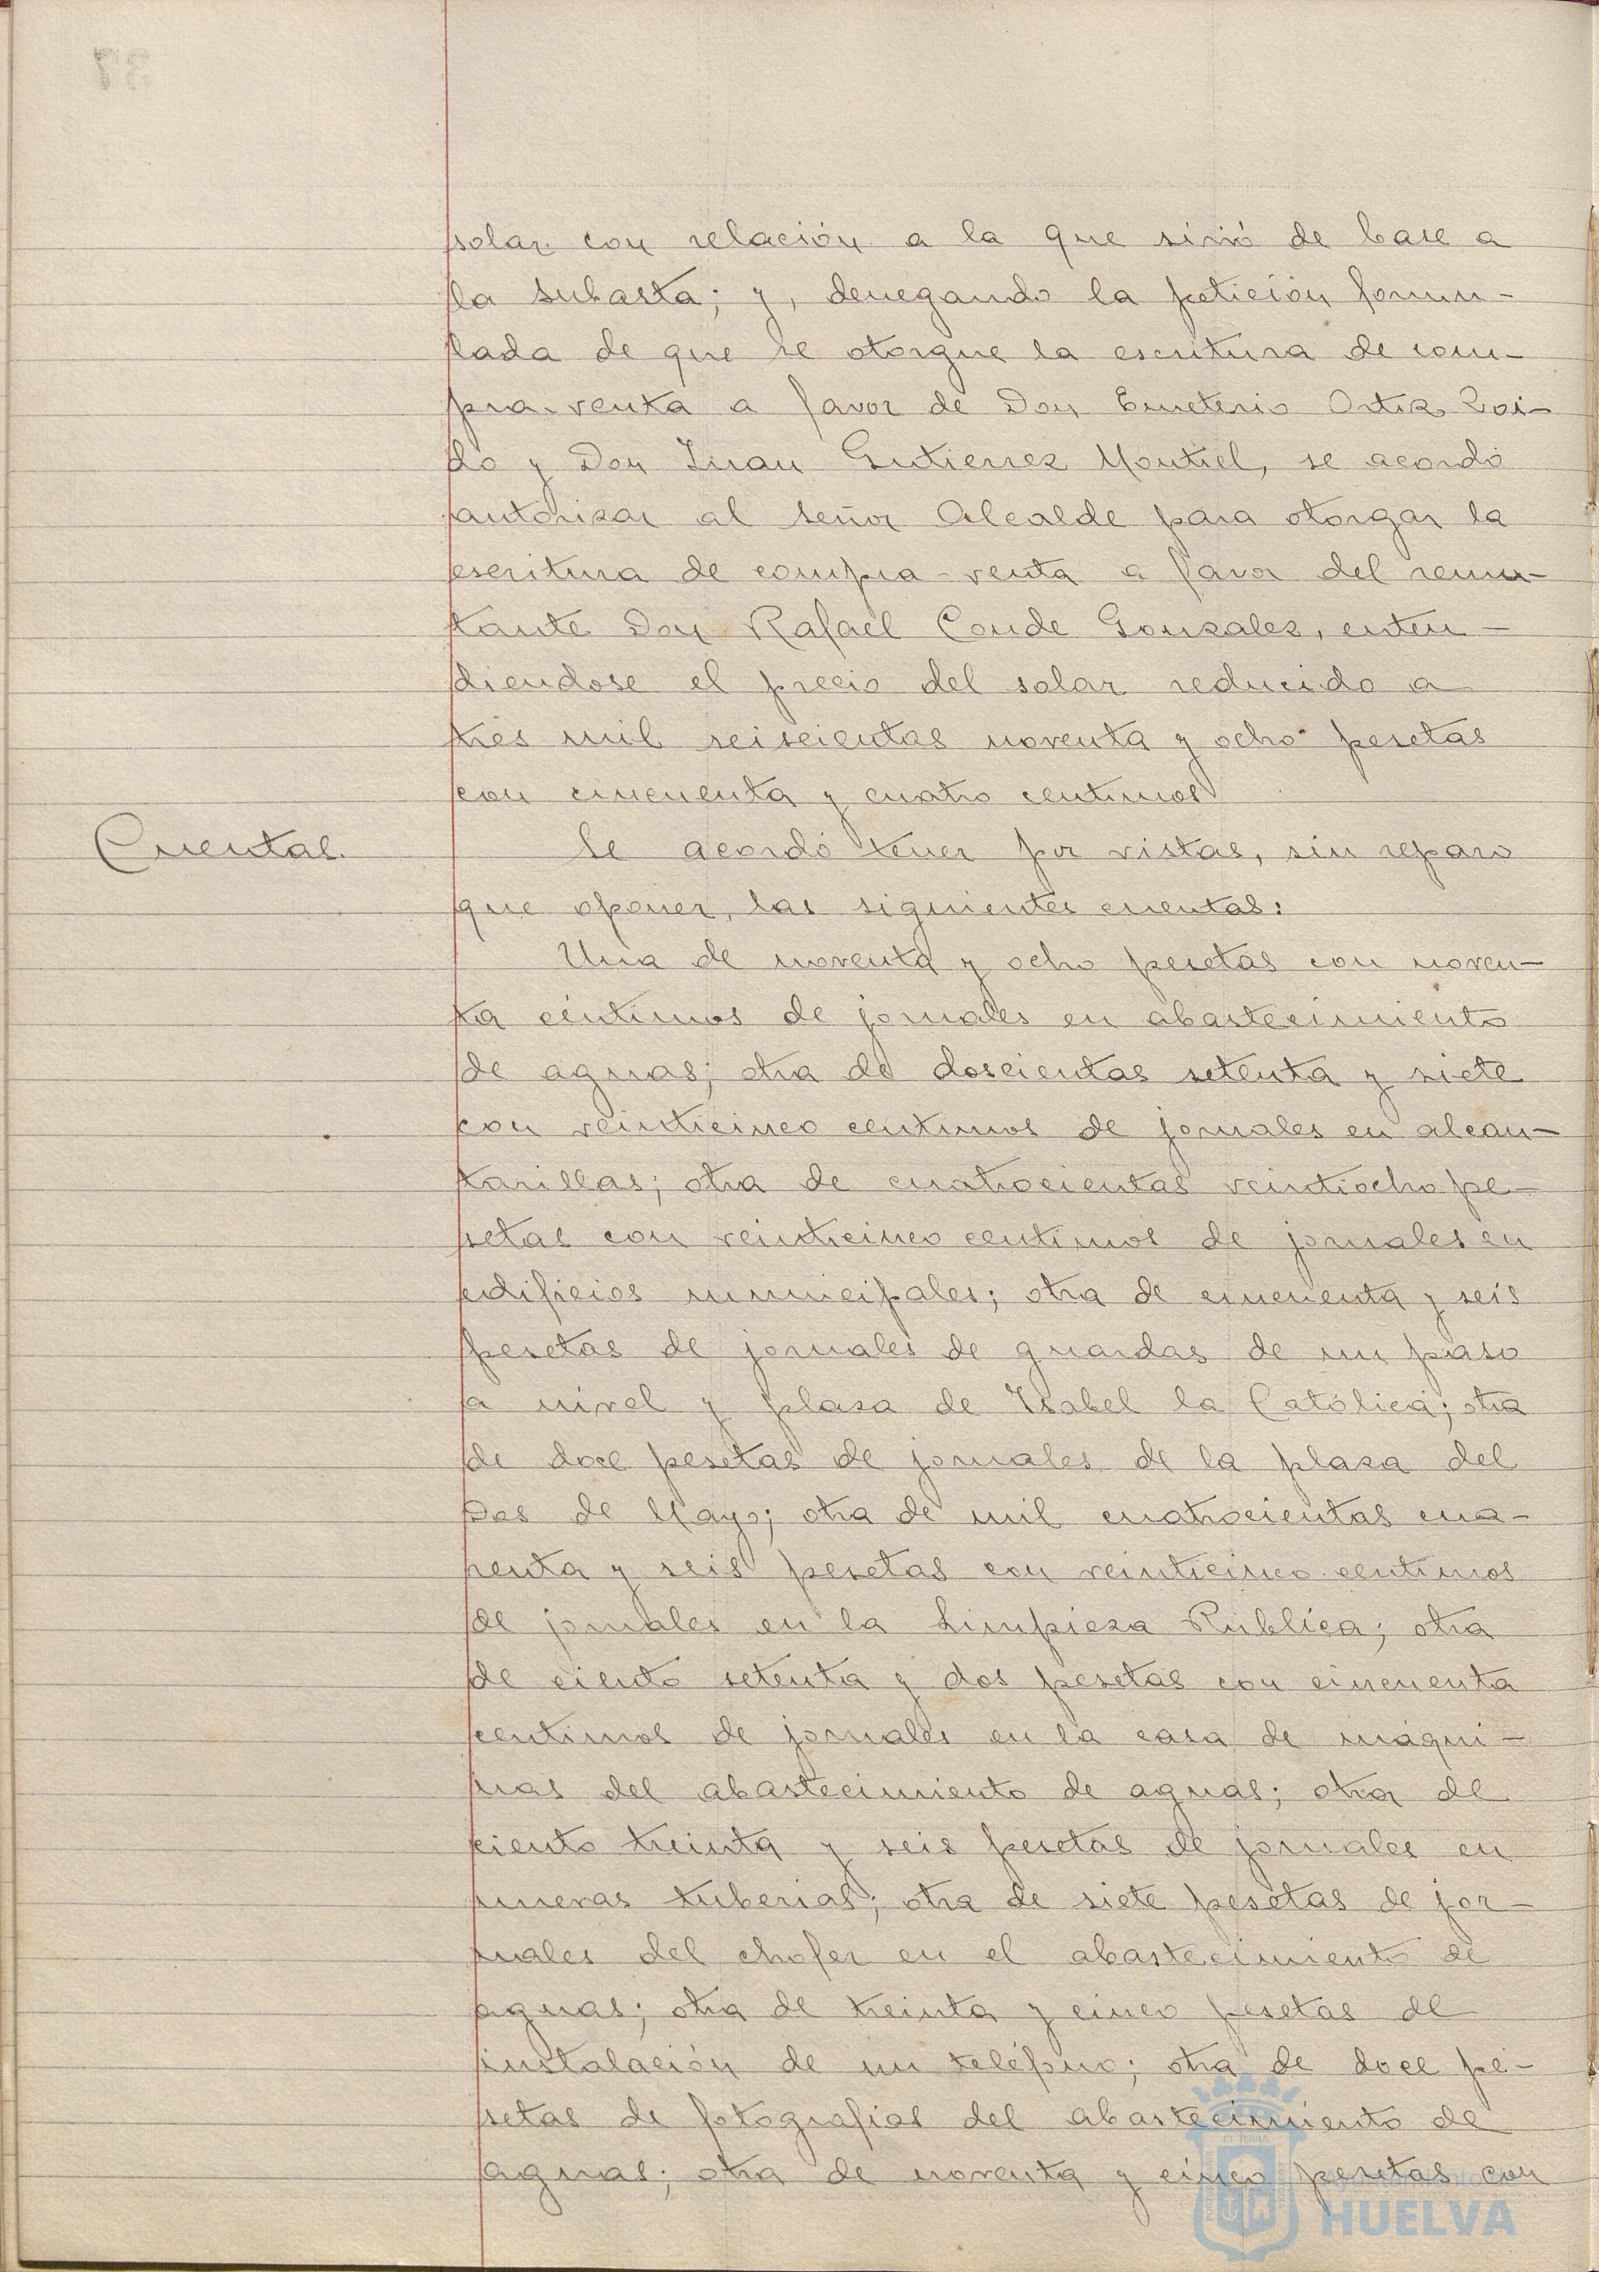 solar con relación a la que sirvió de base a
la subasta; y, denegando la petición formu-
lada de que se otorgue la escritura de com-
pra-venta a favor de Don Emeterio Ortiz Zoi-
do y Don Juan Gutierrez Montiel, se acordó
autorizar al señor Alcalde para otorgar la
escritura de compra-venta a favor del rema-
tante Don Rafael Conde Gonzalez, enten-
diendose el precio del solar reducido a
tres mil seiscientas noventa y ocho pesetas
con cincuenta y cuatro centimos
Cuentas. Se acordó tener por vistas, sin reparo
que oponer, las siguientes cuentas:
Una de noventa y ocho pesetas con noven-
ta céntimos de jornales en abastecimiento
de aguas; otra de doscientas setenta y siete
con veinticinco centimos de jornales en alcan-
tarillas; otra de cuatrocientas veintiocho pe-
setas con veinticinco centimos de jornales en
edificios municipales; otra de cincuenta y seis
pesetas de jornales de guardas de un paso
a nivel y plaza de Isabel la Católica; otra
de doce pesetas de jornales de la plaza del
Dos de Mayo; otra de mil cuatrocientas cua-
renta y seis pesetas con veinticinco centimos
de jornales en la Limpieza Publica; otra
de ciento setenta y dos pesetas con cincuenta
centimos de jornales en la casa de máqui-
nas del abastecimiento de aguas; otra de
ciento treinta y seis pesetas de jornales en
nuevas tuberias; otra de siete pesetas de jor-
nales del chofer en el abastecimiento de
aguas; otra de treinta y cinco pesetas de
instalación de un teléfono; otra de doce pe-
setas de fotografias del abastecimiento de
aguas; otra de noventa y cinco pesetas con
HUELVA
37